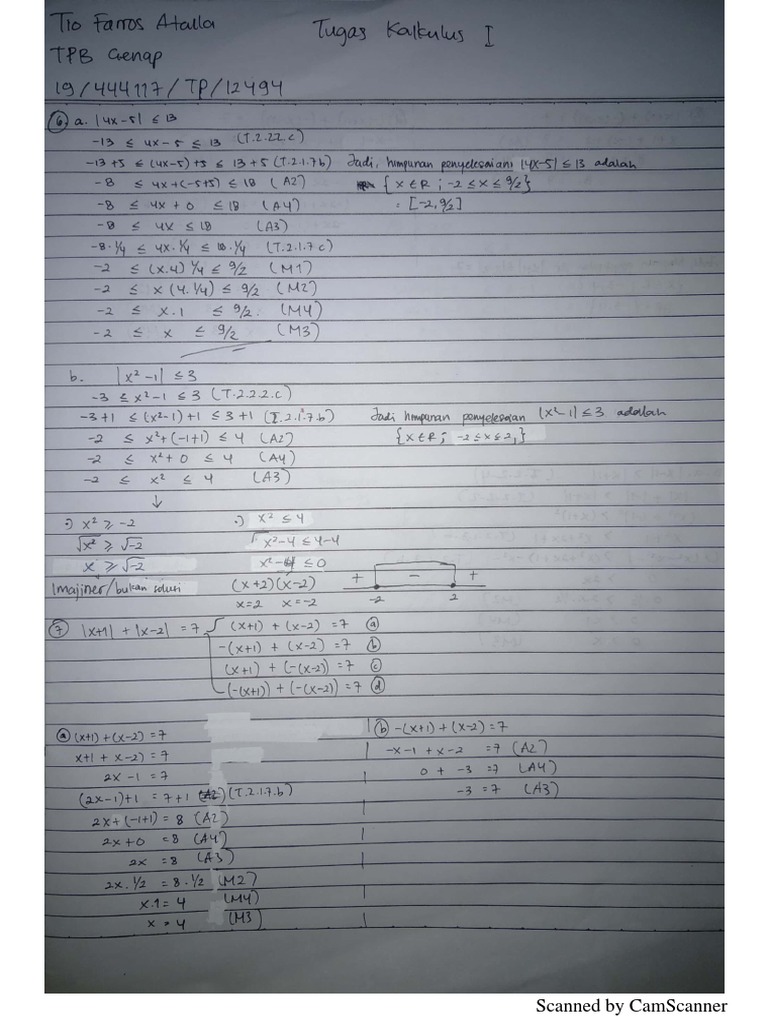 Tio Farros Atalla
Tugas Kalkulus I
TPB Genap
19/444117/TP/12494
⑥ a. |4x-5| ≤ 13
-13 ≤ 4x-5 ≤ 13 (T.2.22.c)
-13+5 ≤ (4x-5)+5 ≤ 13+5 (T.2.1.7b)
-8 ≤ 4x+(-5+5) ≤ 18 (A2)
-8 ≤ 4x + 0 ≤ 18 (A4)
-8 ≤ 4x ≤ 18 (A3)
-8.1/4 ≤ 4x.1/4 ≤ 18.1/4 (T.2.1.7c)
-2 ≤ (x.4) 1/4 ≤ 9/2 (M1)
-2 ≤ x (4.1/4) ≤ 9/2 (M2)
-2 ≤ x.1 ≤ 9/2. (M4)
-2 ≤ x ≤ 9/2 (M3)
Jadi, himpunan penyelesaian |4x-5| ≤ 13 adalah
{x ∈ R ; -2 ≤ x ≤ 9/2}
= [-2, 9/2]
b. |x²-1| ≤ 3
-3 ≤ x²-1 ≤ 3 (T.2.2.2.c)
-3+1 ≤ (x²-1)+1 ≤ 3+1 (T.2.1.7b)
-2 ≤ x²+(-1+1) ≤ 4 (A2)
-2 ≤ x²+0 ≤ 4 (A4)
-2 ≤ x² ≤ 4 (A3)
Jadi himpunan penyelesaian |x²-1| ≤ 3 adalah
{x ∈ R ; -2 ≤ x ≤ 2,}
↓
·) x² ≥ -2
√x² ≥ √-2
x ≥ √-2
Imajiner/bukan solusi
·) x² ≤ 4
x²-4 ≤ 4-4
x²-4 ≤ 0
(x+2)(x-2)
x=2 x=-2
+ - +
-2 2
⑦ |x+1| + |x-2| = 7
(x+1) + (x-2) = 7 ⓐ
-(x+1) + (x-2) = 7 ⓑ
(x+1) + (-(x-2)) = 7 ⓒ
(-(x+1)) + (-(x-2)) = 7 ⓓ
ⓐ (x+1)+(x-2) = 7
x+1 + x-2) = 7
2x -1 = 7
(2x-1)+1 = 7+1 (T.2.1.7.b)
2x+(-1+1) = 8 (A2)
2x+0 = 8 (A4)
2x = 8 (A3)
2x.1/2 = 8.1/2 (M2)
x.1 = 4 (M4)
x = 4 (M3)
ⓑ -(x+1) + (x-2) = 7
-x-1 + x-2 = 7 (A2)
0 + -3 = 7 (A4)
-3 = 7 (A3)
Scanned by CamScanner